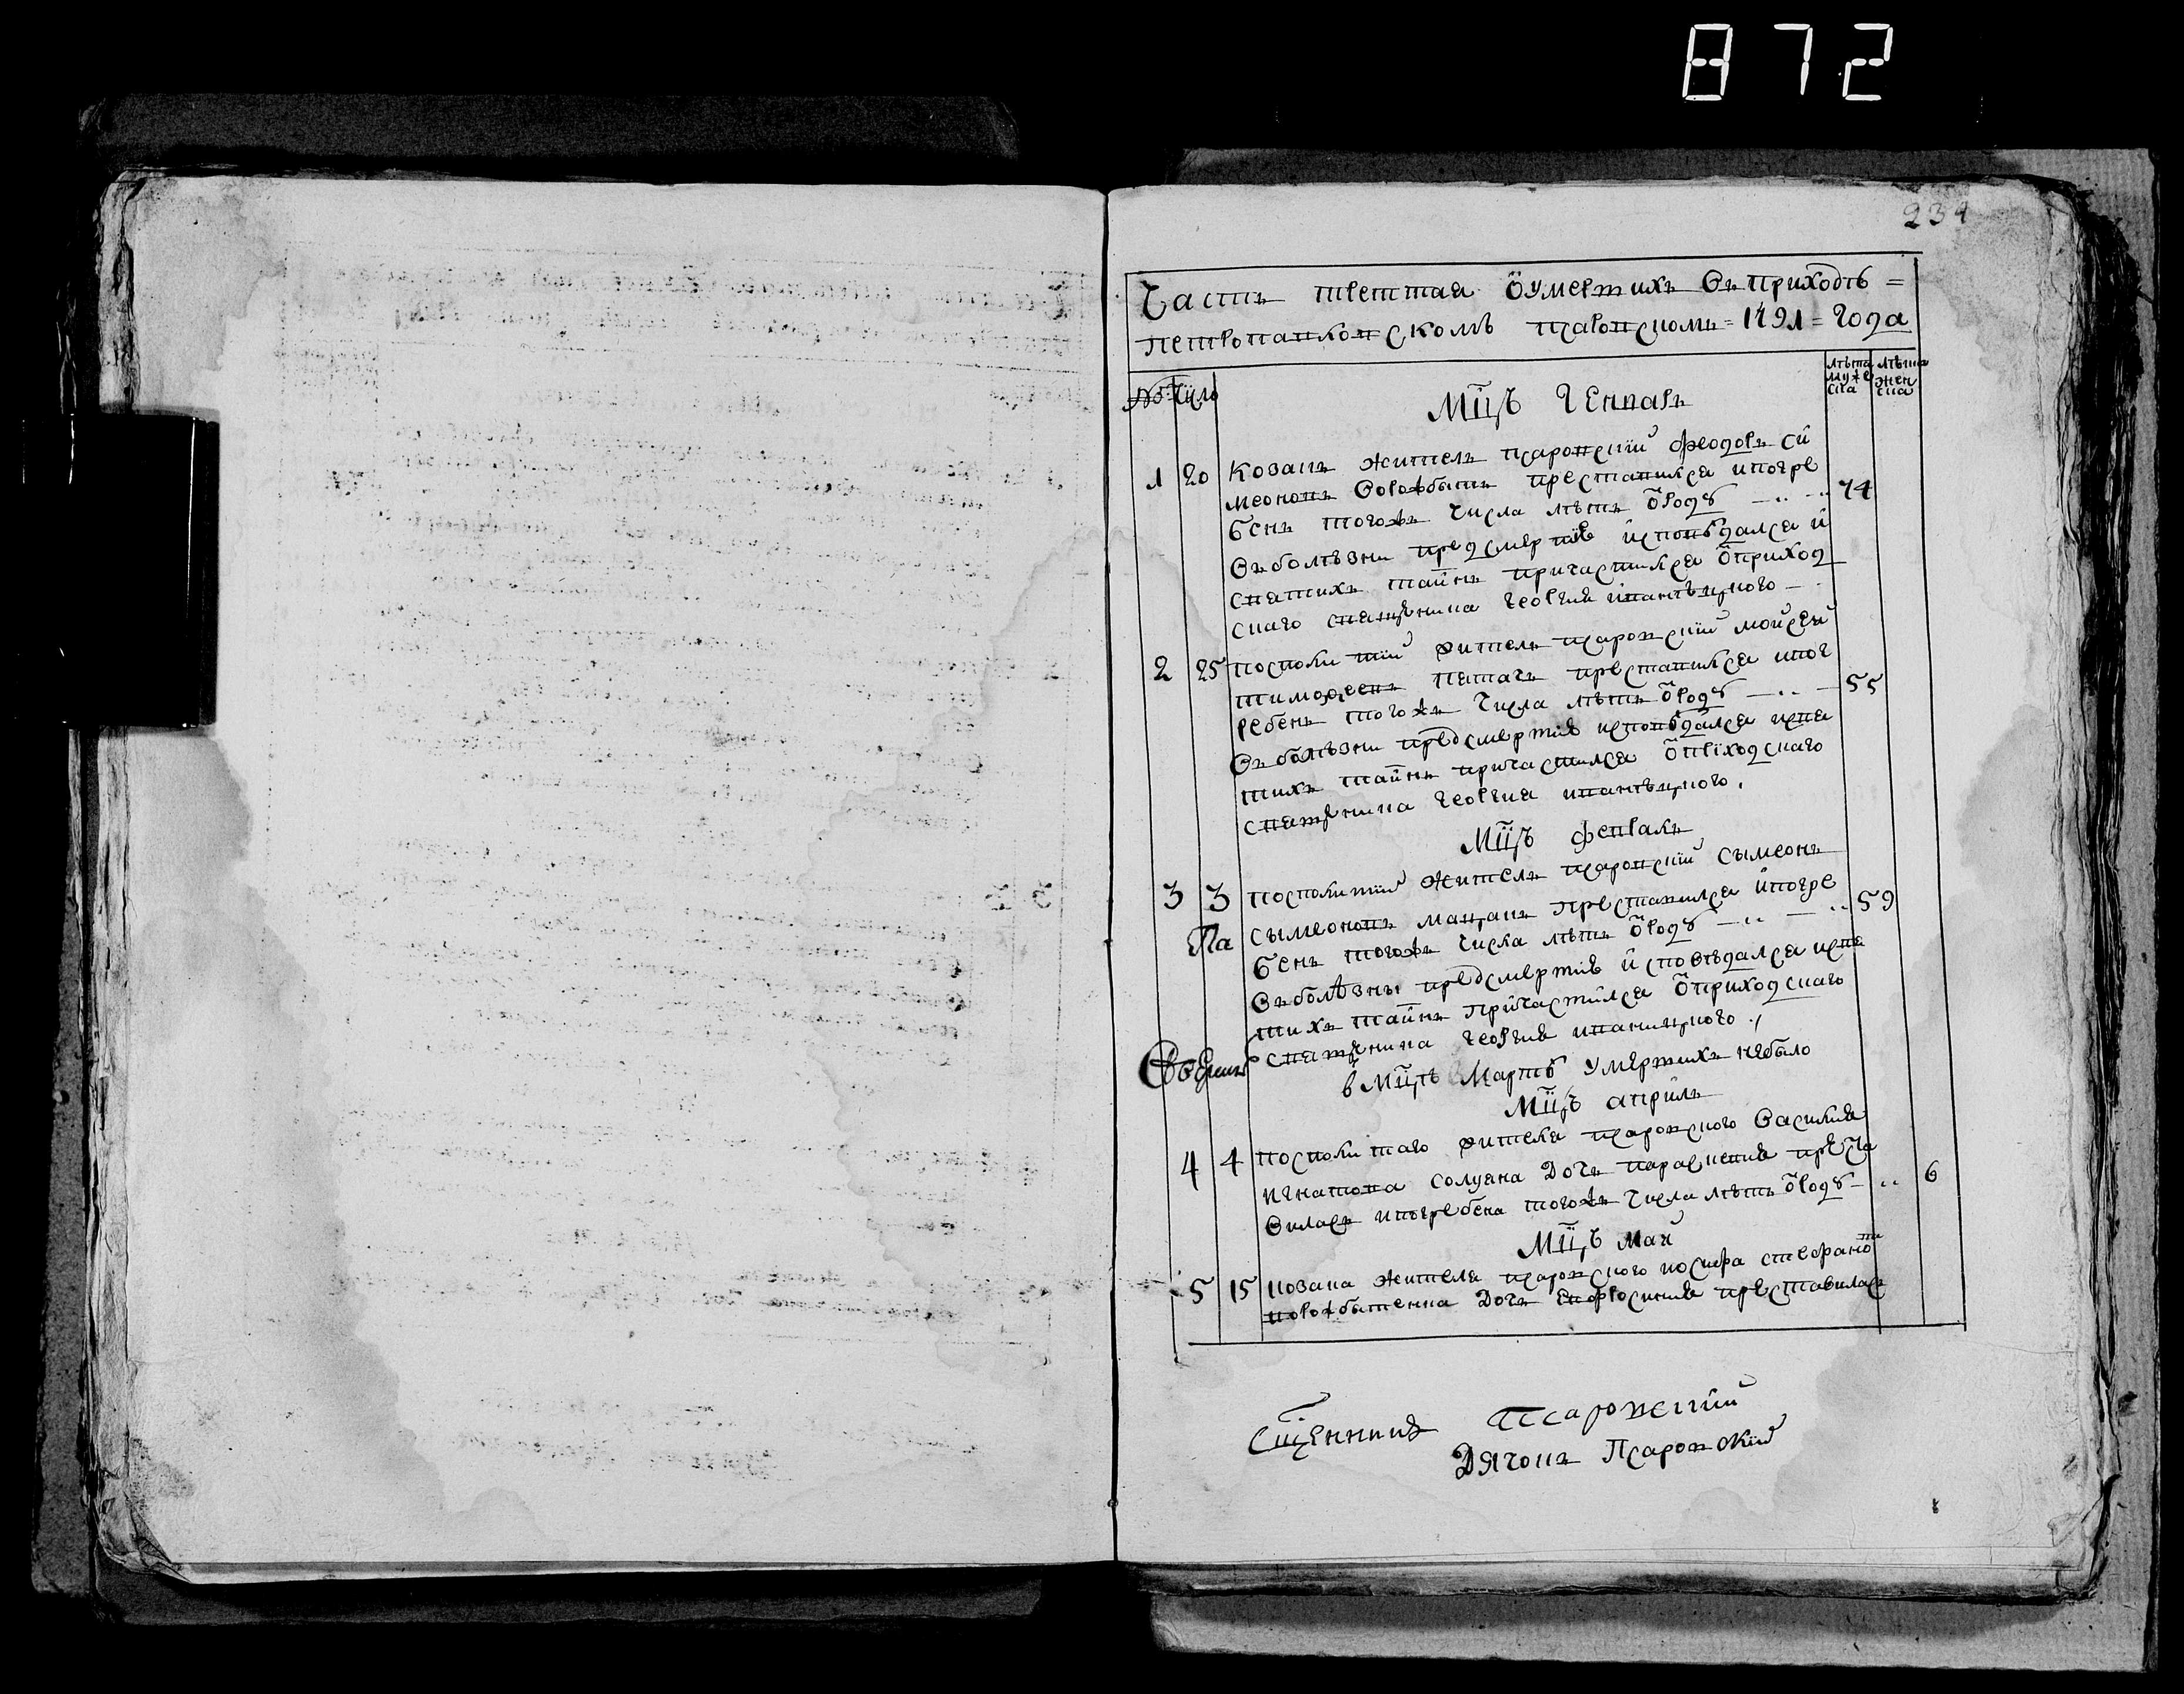 872
234
Часть треттая ѿ умертихъ въ приходѣ =
петропавловскомъ псаровскомъ = 1791 = года
№ Число
лѣта мужеска
лѣта женска
Мцъ Генварь
1 20 Козакъ житель псаровскїй Феодоръ Си
меоновъ Ворожбытъ преставился и погре
бенъ тогожъ числа лѣтъ ѿ роду — 74
Въ болѣзни предсмертнѣ исповѣдался и
святихъ таинъ причастился ѿ приход
скаго священника Георгия Иваницкого —
2 25 посполитїй житель псаровскїй Мойсей
Тимофеевъ Патачъ преставился и пог
ребенъ тогожъ числа лѣтъ ѿ роду — 55
Въ болѣзни предсмертнѣ исповѣдался и свя
тихъ таинъ причастился ѿ приходскаго
священника Георгия Иваницкого.
Мцъ Февраль
3 3 посполитїй житель псаровскїй Сымеонъ
Сымеоновъ Мацакъ преставился и погре
бенъ тогожъ числа лѣтъ ѿ роду — 59
Въ болѣзны предсмертнѣ исповѣдался и свя
тихъ таинъ причастился ѿ приходскаго
священника Георгия Иваницкого.
в Мцѣ Мартѣ умертихъ небыло
Мцъ априль
4 4 посполитаго жителя псаровского Василия
Игнатова Солуяна дочь Параскевия преста
вилась и погребена тогожъ числа лѣтъ ѿ роду — 6
Мцъ Май
5 15 козака жителя псаровского Иосифа Стефанова
Ворожбытенка дочь Евфросиния преставилась
Сщенникъ Псаровскїй
Дячокъ Псаровскїй